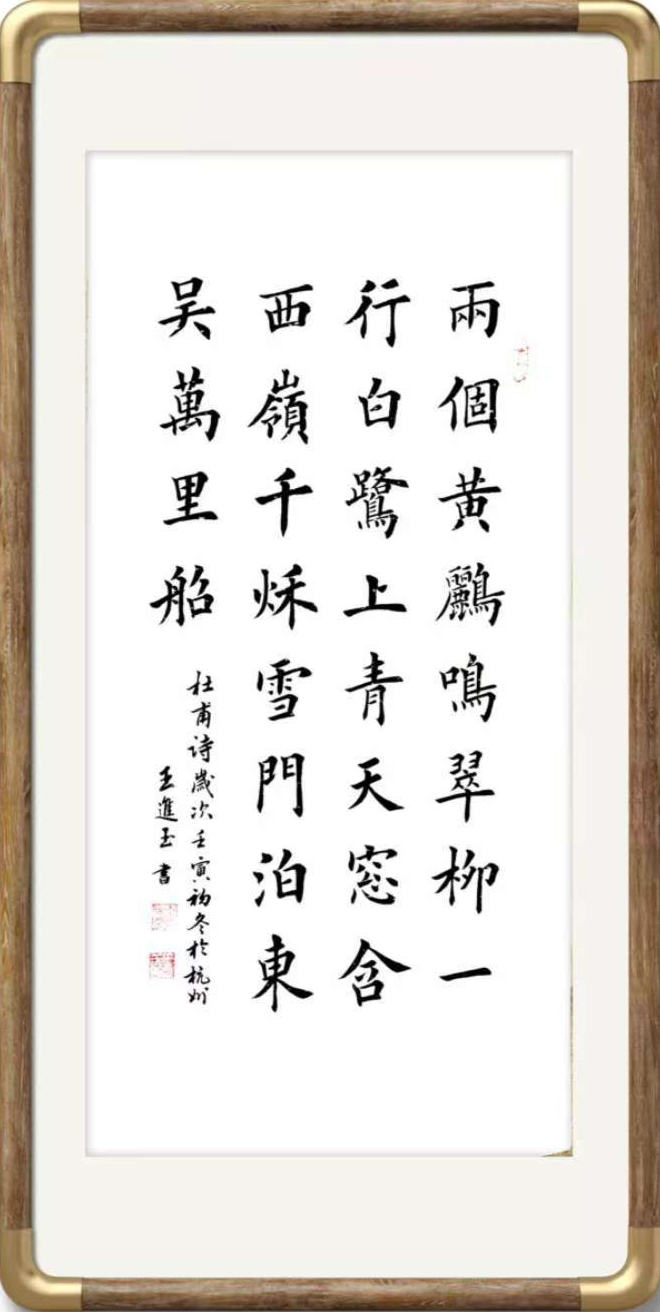 兩個黄鸝鳴翠柳一
行白鷺上青天窓含
西嶺千秌雪門泊東
吴萬里船
杜甫诗歲次壬寅初冬於杭州
王進玉書